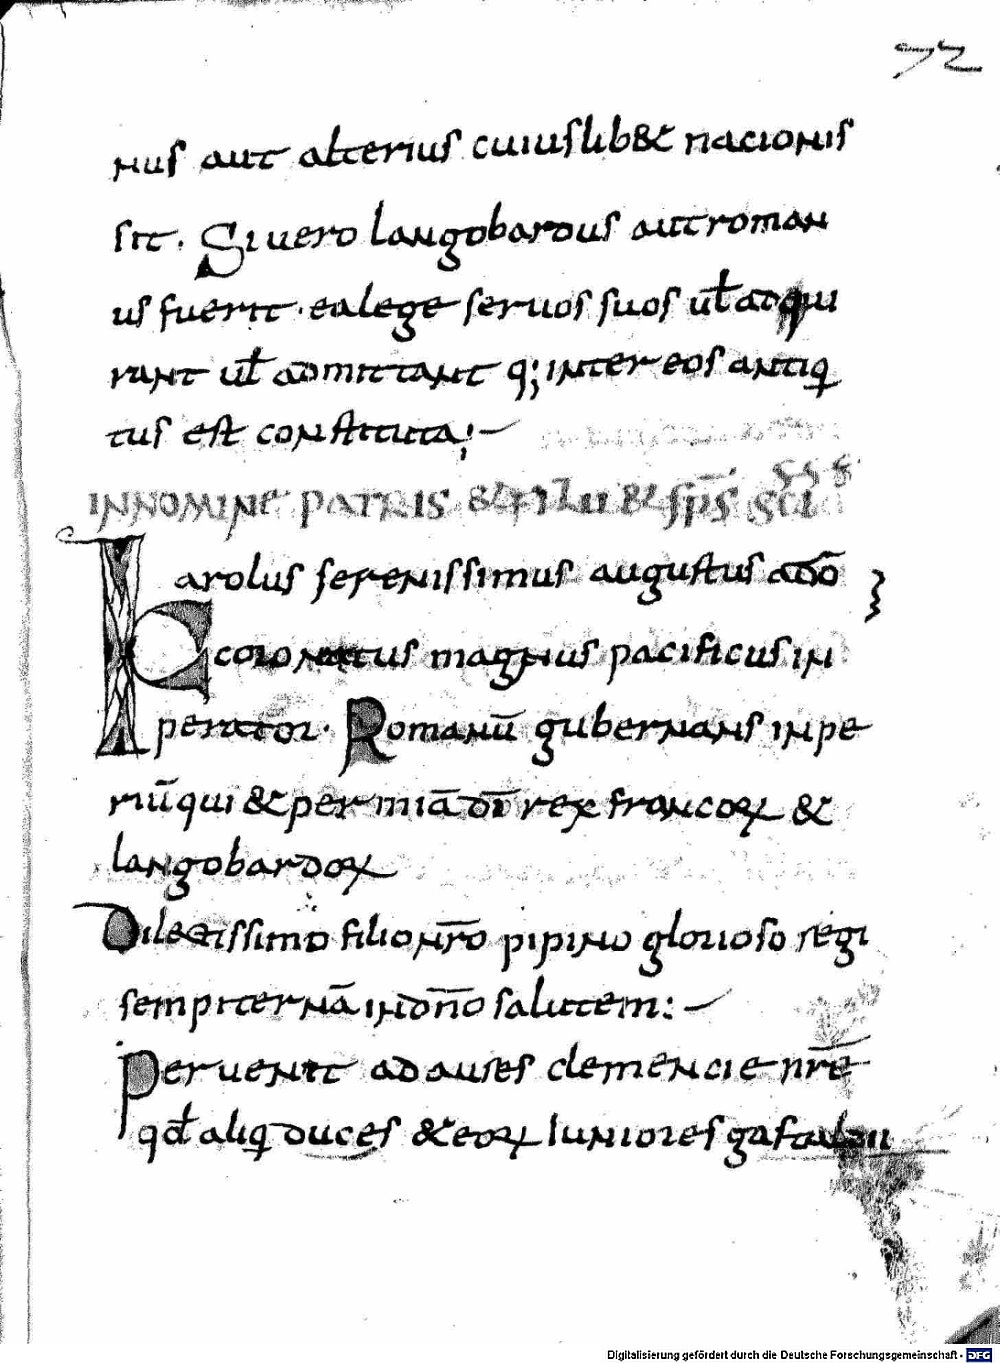 72
nus aut alterius cuiuslib& nacionis
sit. Si uero langobardus aut roman
us fuerit. ea lege seruos suos ul̃ adqui
rant ul̃ admittant q; inter eos antiq
tus est constituta;
IN NOMINE PATRIS & FILII & SP̄S S̄CI
Karolus serenissimus augustus adō
coronatus magnus pacificus in
perator. Romanū gubernans inpe
riū qui & per miā dī rex francoꝝ &
langobardoꝝ
Dilectissimo filio nr̄o pipino glorioso regi
sempiternā in dōno salutem:
Peruenit ad aures clemencie nr̄e
qđ aliq duces & eoꝝ iuniores gastaldii
Digitalisierung gefördert durch die Deutsche Forschungsgemeinschaft - DFG